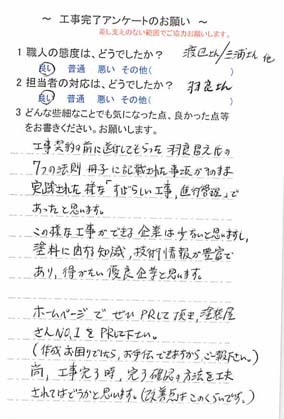 ～ 工事完了アンケートのお願い ～
差し支えのない範囲でご協力お願いします。
1 職人の態度は、どうでしたか？ 渡辺さん/三浦さん 他
良い 普通 悪い その他(
2 担当者の対応は、どうでしたか？ 羽良さん
良い 普通 悪い その他(
3 どんな些細なことでも気になった点、良かった点等
をお書きください。お願いします。
工事契約の前に送付してもらった羽良君夫氏の
7つの法則冊子に記載された事項がそのまま
実践された様な「すばらしい工事,進行管理」で
あったと思います。
この様な工事ができる企業は少ないと思いますし,
塗料に内する知識,技術情報が豊富で
あり,得がたい優良企業と思います。
ホームページでぜひPRして頂き,塗装屋
さんNO,1をPRして下さい。
(作成お困りでしたら,お手伝いできますから,ご一報下さい。)
尚,工事完了時,完了確認の方法を工夫
されてはどうかと思います。(改善点はこのくらいです。)